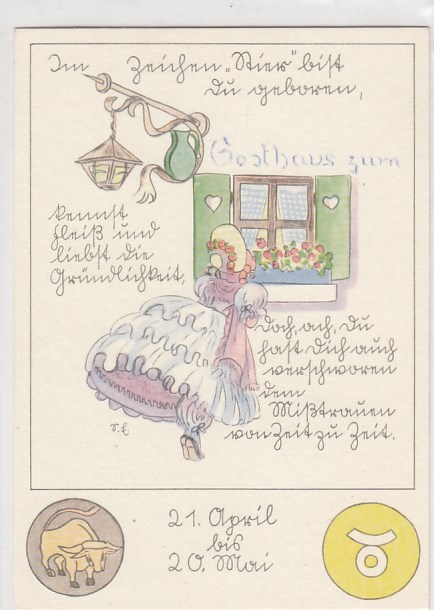 Im Zeichen „Stier“ bist
Du geboren,
Gasthaus zum
kennst
Fleiß und
liebst die
Gründlichkeit,
Doch, ach, Du
hast Dich auch
verschworen
dem
Mißtrauen
von Zeit zu Zeit.
21. April
bis
20. Mai